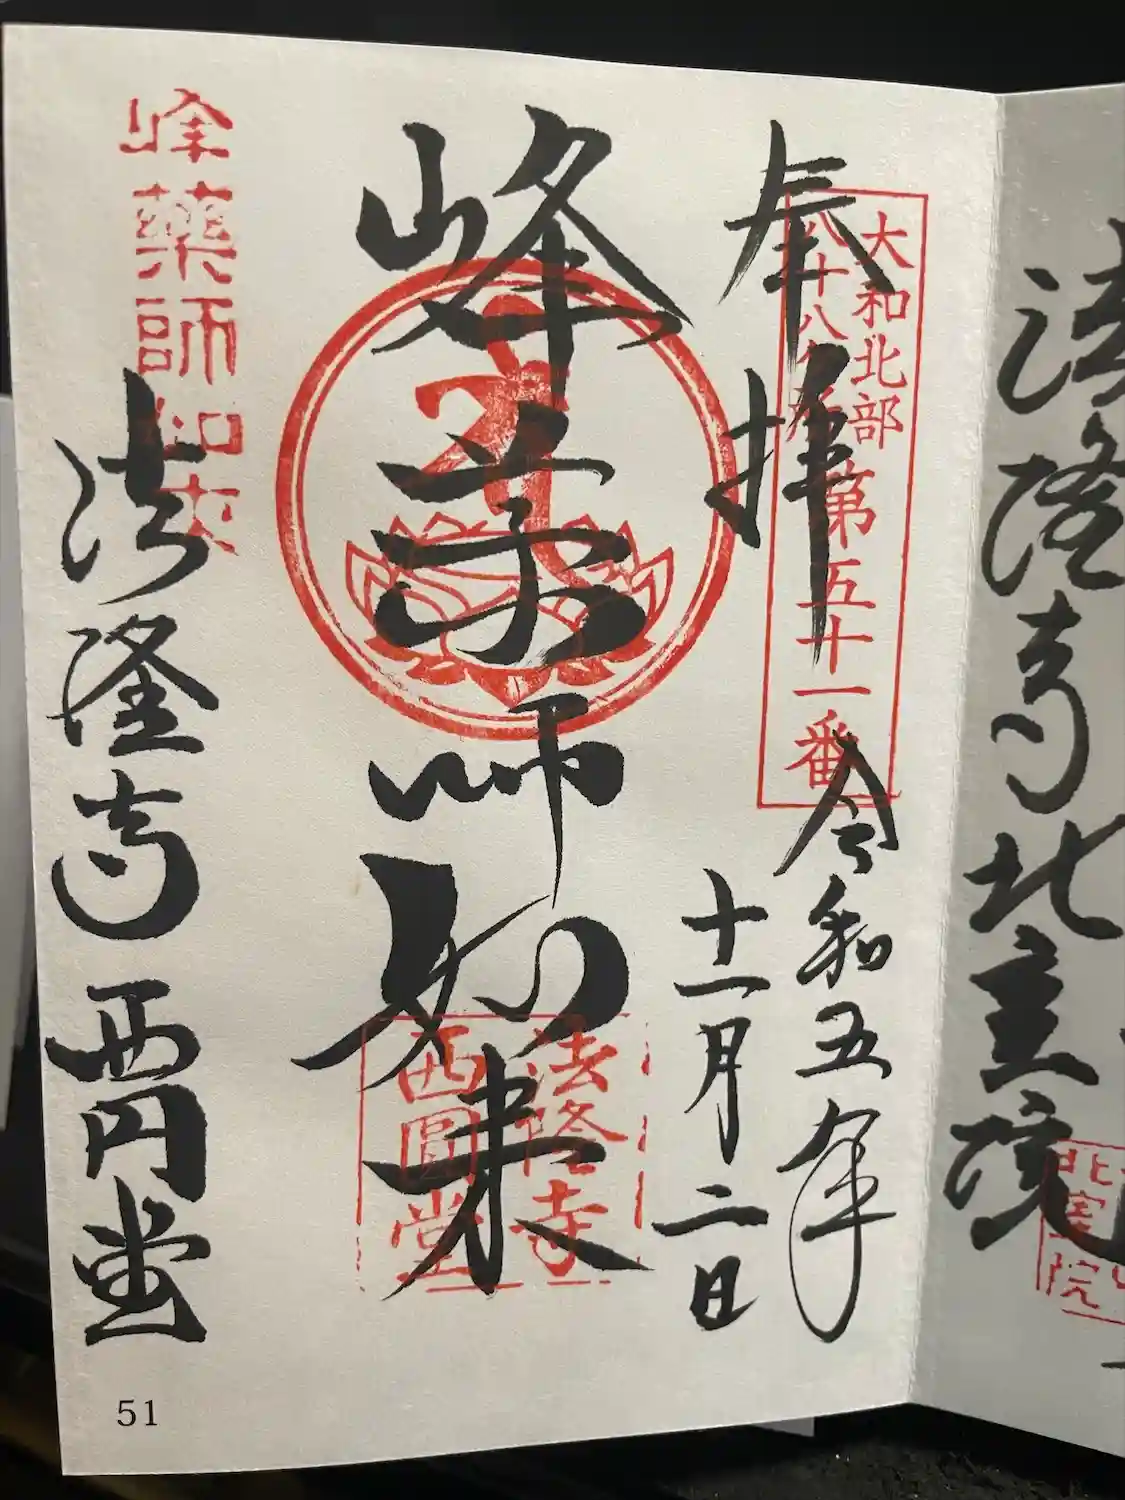 法隆寺北室院
北室院
奉拝
大和北部
八十八ヶ所第五十一番
令和五年
十一月二日
峰薬師如来
法隆寺
西圓堂
峰藥師如来
法隆寺西円堂
51